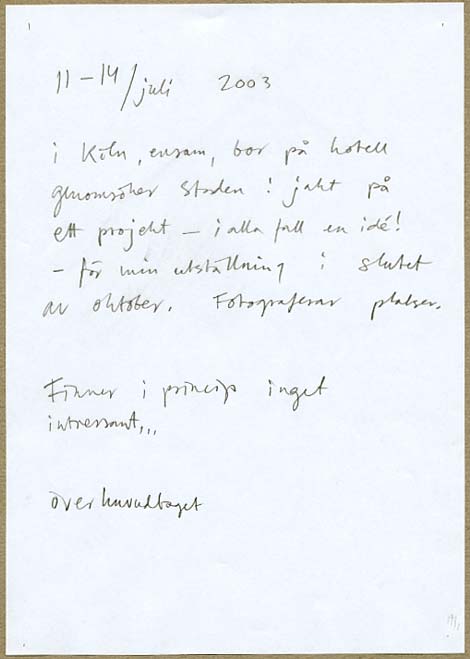 11-14/juli 2003
i Köln, ensam, bor på hotell
genomsöker staden i jakt på
ett projekt – i alla fall en idé!
– för min utställning i slutet
av oktober. Fotograferar platser.
Finner i princip inget
intressant...
överhuvudtaget